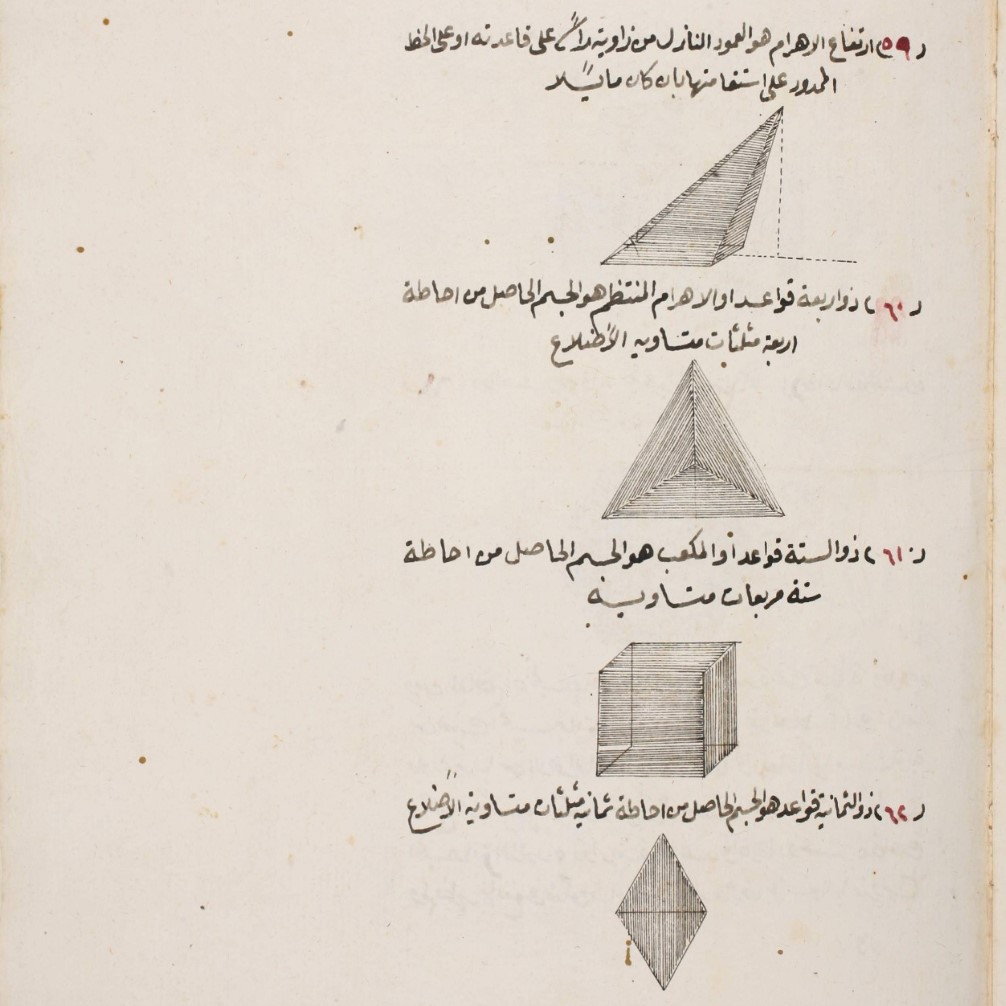 (٥٩) ارتفاع الاهرام هو العمود النازل من زاوية راسه على قاعدته او على الخط
الممدود على استقامتها بان كان مايلا
(٦٠) ذو اربعة قواعد او الاهرام المنتظم هو الجسم الحاصل من احاطة
اربعة مثلثات متساوية الأضلاع
(٦١) ذو الستة قواعد أو المكعب هو الجسم الحاصل من احاطة
ستة مربعات متساوية
(٦٢) ذو الثمانية قواعد هو الجسم الحاصل من احاطة ثمانية مثلثات متساوية الأضلاع